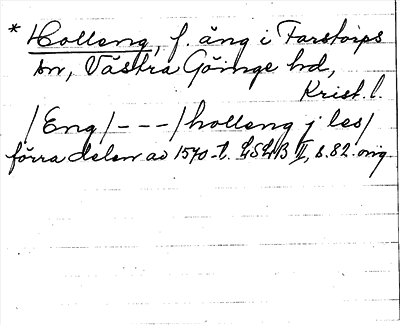 * Holleng, f. äng i Farstorps
sn, Västra Göinge hd,
Krist. l.
/Eng/ - - - /holleng j les/
förra delen av 1570-t. LSLB II, s. 82. orig